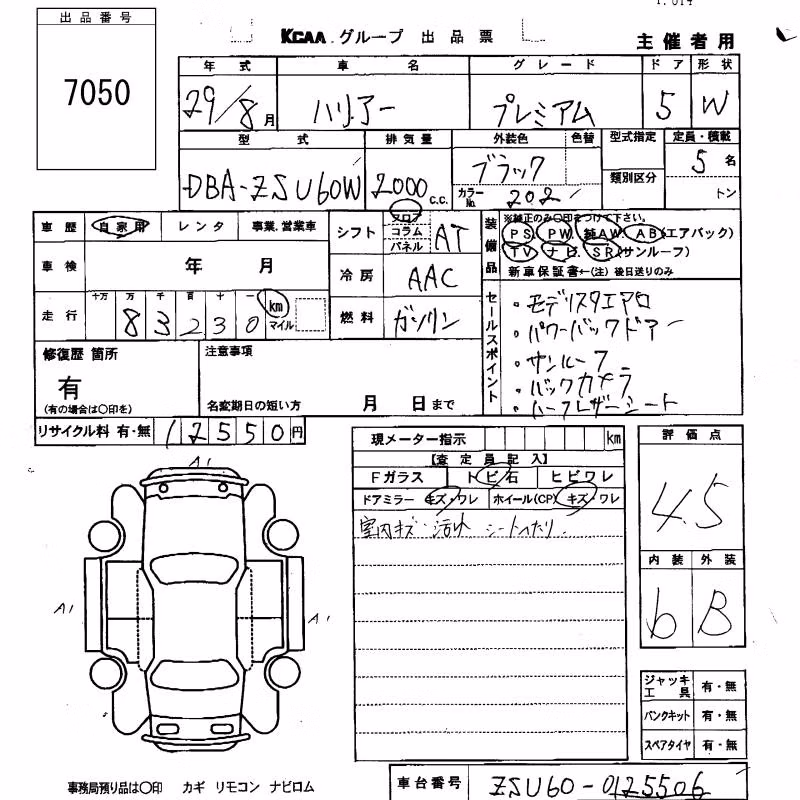 出品番号
7050
KCAA グループ 出品票
主催者用
年式 車名 グレード ドア 形状
29/8月 ハリアー プレミアム 5 W
型式 排気量 外装色 色替 型式指定 定員・積載
DBA-ZSU60W 2000 c.c. ブラック 類別区分 5 名
カラーNo. 202 トン
車歴 自家用 レンタ 事業,営業車
シフト フロア コラム パネル AT
装備品 ※純正のみ〇印をつけて下さい。
PS PW 純AW AB(エアバック)
TV ナビ SR(サンルーフ)
新車保証書←(注)後日送りのみ
車検 年 月
冷房 AAC
走行 十万 万 千 百 十 一 km マイル
83230
燃料 ガソリン
セールスポイント
・モデリスタエアロ
・パワーバックドアー
・サンルーフ
・バックカメラ
・ハーフレザーシート
修復歴 箇所
有
(有の場合は〇印を)
注意事項
名変期日の短い方 月 日まで
リサイクル料 有・無 12550円
現メーター指示 km
【査定員記入】
Fガラス トビ石 ヒビワレ
ドアミラー キズ・ワレ ホイール(CP) キズ・ワレ
室内キズ・汚れ シートへたり.
評価点
4.5
内装 外装
b B
A1
A1
A1
ジャッキ工具 有・無
パンクキット 有・無
スペアタイヤ 有・無
事務局預り品は〇印 カギ リモコン ナビロム
車台番号 ZSU60-0125506